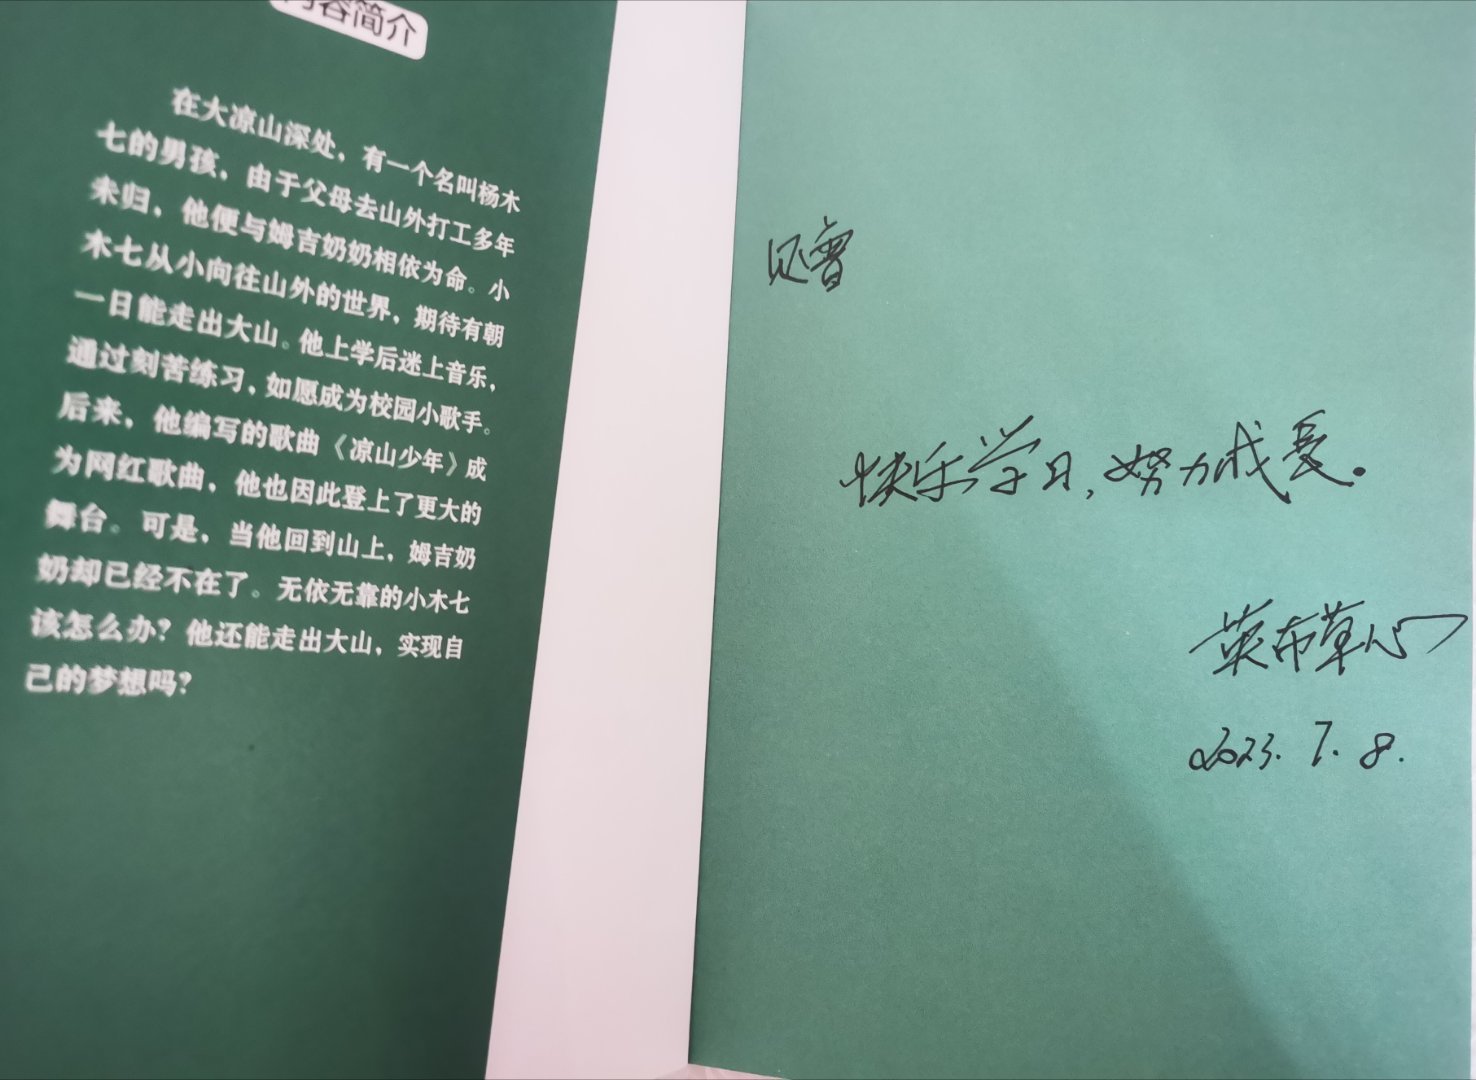 内容简介
在大凉山深处，有一个名叫杨木
七的男孩，由于父母去山外打工多年
未归，他便与姆吉奶奶相依为命。小
木七从小向往山外的世界，期待有朝
一日能走出大山。他上学后迷上音乐，
通过刻苦练习，如愿成为校园小歌手。
后来，他编写的歌曲《凉山少年》成
为网红歌曲，他也因此登上了更大的
舞台。可是，当他回到山上，姆吉奶
奶却已经不在了。无依无靠的小木七
该怎么办？他还能走出大山，实现自
己的梦想吗？
快乐学习，努力成長。
英布草心
2023.7.8.